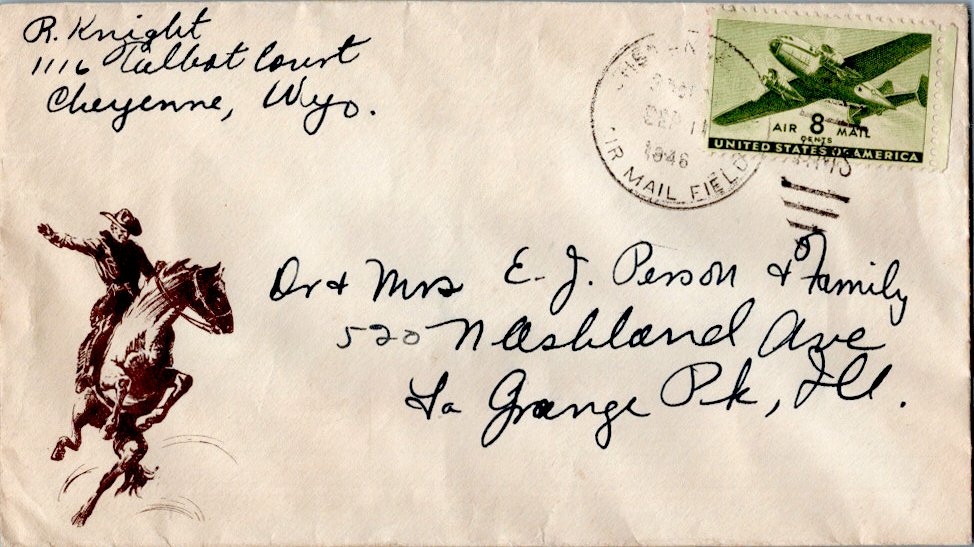 R. Knight
1116 Talbot Court
Cheyenne, Wyo.
SEP 11
1946
AIR MAIL FIELD
AIR 8 MAIL
CENTS
UNITED STATES OF AMERICA
Dr & Mrs E. J. Person & Family
520 N Ashland Ave
La Grange Pk, Ill.